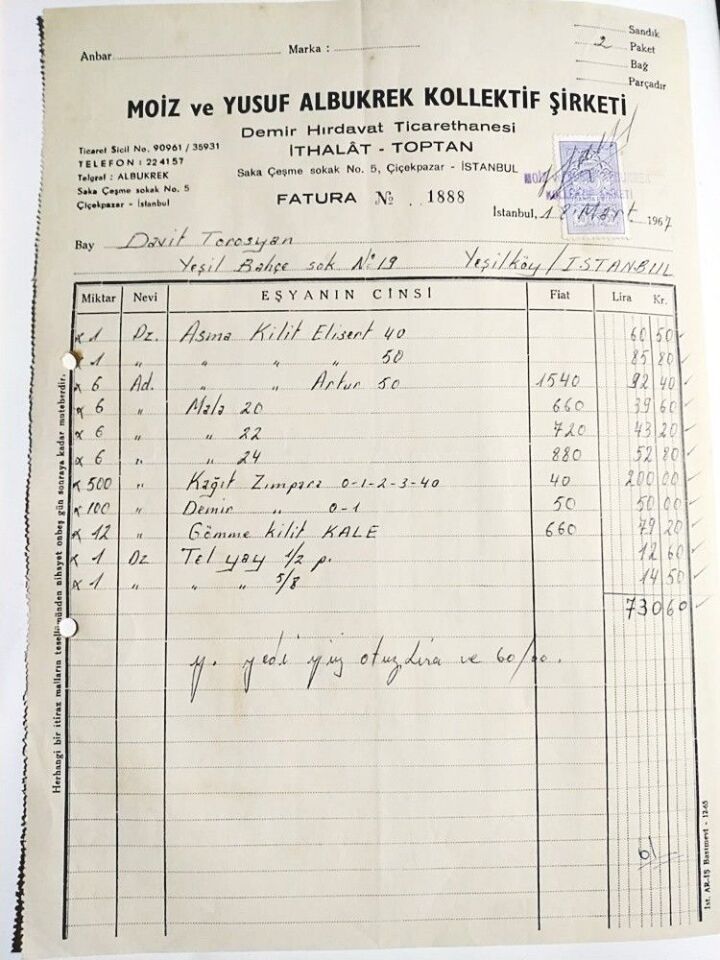 Anbar Marka :
Sandık
2 Paket
Bağ
Parçadır
MOİZ ve YUSUF ALBUKREK KOLLEKTİF ŞİRKETİ
Demir Hırdavat Ticarethanesi
İTHALÂT - TOPTAN
Saka Çeşme sokak No. 5, Çiçekpazar - İSTANBUL
Ticaret Sicil No. 90961 / 35931
TELEFON : 22 41 57
Telgraf : ALBUKREK
Saka Çeşme sokak No. 5
Çiçekpazar - İstanbul
FATURA № 1888
MOİZ ve YUSUF ALBUKREK
KOLLEKTİF ŞİRKETİ
İstanbul, 18 Mart 1967
Bay Davit Torosyan
Yeşil Bahçe sok No 19 Yeşilköy / İSTANBUL
Miktar Nevi EŞYANIN CİNSİ Fiat Lira Kr.
1 Dz. Asma Kilit Elisert 40 60 50
1 " " " " 50 85 80
6 Ad. " " Artur 50 1540 92 40
6 " Mala 20 660 39 60
6 " " 22 720 43 20
6 " " 24 880 52 80
500 " Kağıt Zımpara 0-1-2-3-40 40 200 00
100 " Demir " 0-1 50 50 00
12 " Gömme kilit KALE 660 79 20
1 Dz Tel yay 1/2 p. 12 60
1 " " " 5/8 14 50
730 60
y. yedi yüz otuz Lira ve 60/00.
Herhangi bir itiraz malların tesellümünden nihayet onbeş gün sonraya kadar muteberdir.
İst. AR-İŞ Basımevi - 12-65